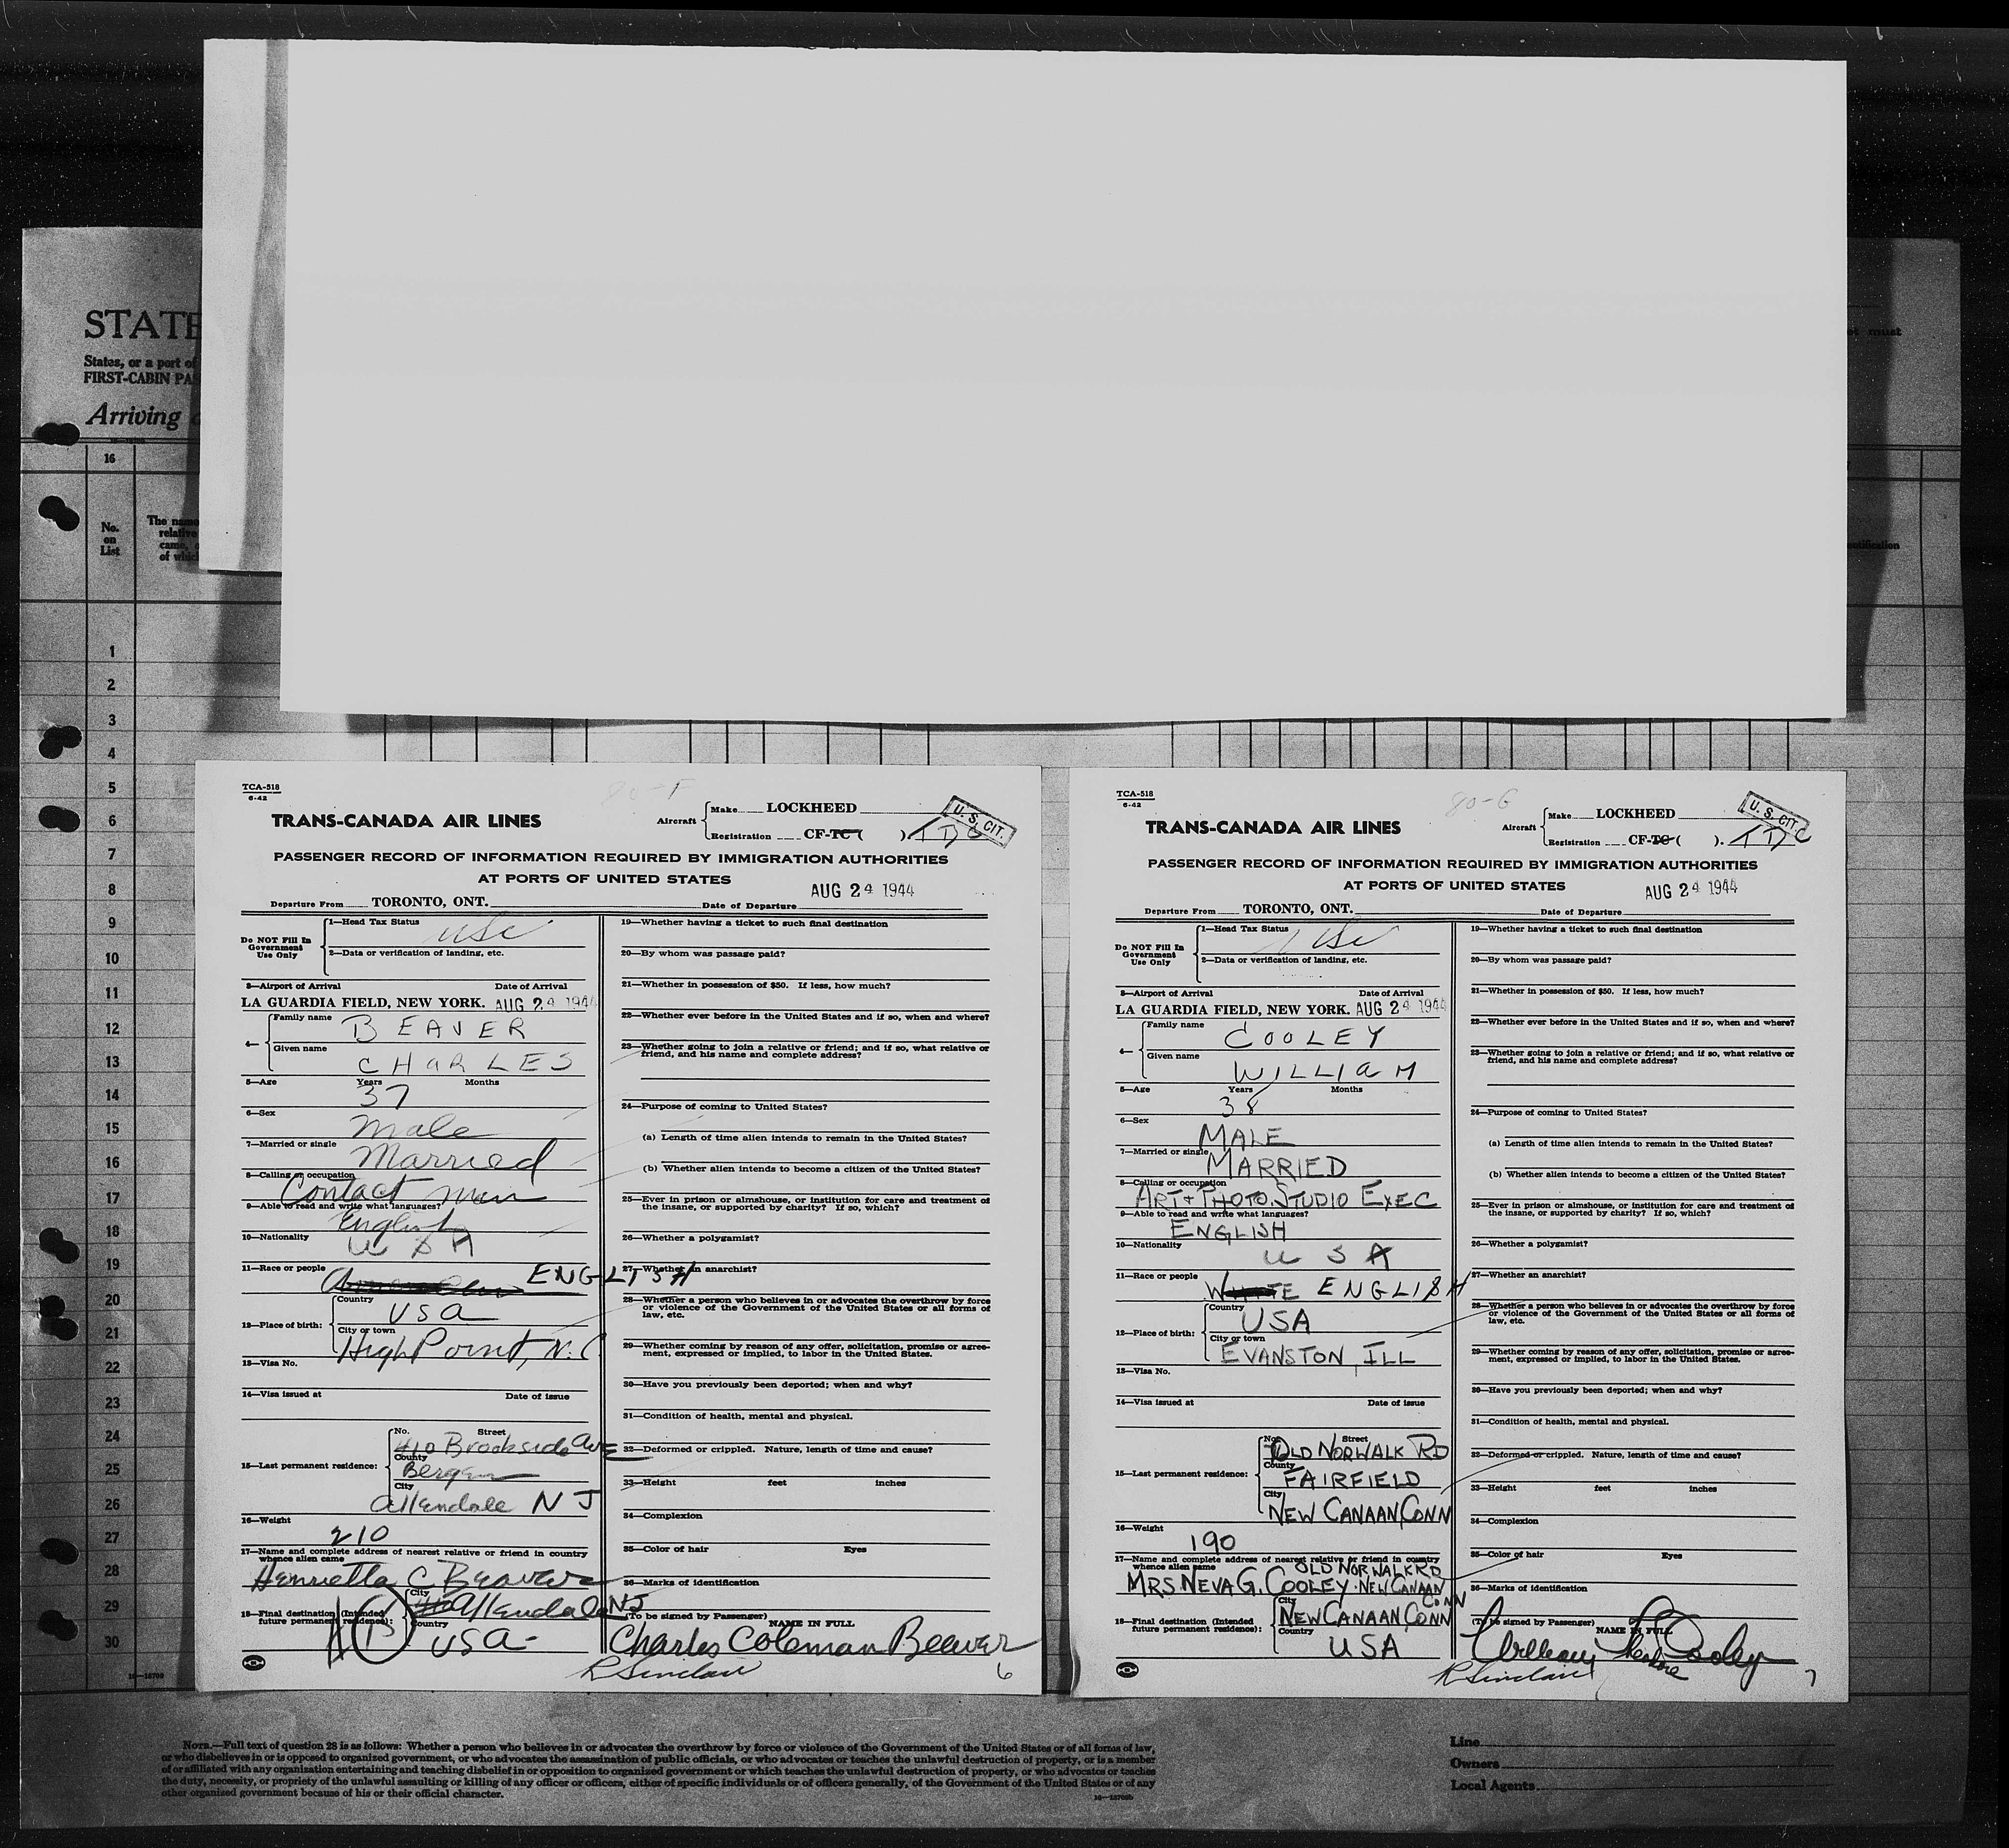 STATE
States, or a port of
FIRST-CABIN PA
Arriving
et must
16
No.
on
List
The name
relative
came,
of which
entification
1
2
3
4
5
6
7
8
9
10
11
12
13
14
15
16
17
18
19
20
21
22
23
24
25
26
27
28
29
30
16—13709
TCA-518
6-42
80-F
TRANS-CANADA AIR LINES
Aircraft
Make LOCKHEED
Registration CF-TC ( )
U. S. CIT.
PASSENGER RECORD OF INFORMATION REQUIRED BY IMMIGRATION AUTHORITIES
AT PORTS OF UNITED STATES
AUG 24 1944
Departure From TORONTO, ONT. Date of Departure
Do NOT Fill In
Government
Use Only
1—Head Tax Status
USC
2—Data or verification of landing, etc.
3—Airport of Arrival Date of Arrival
LA GUARDIA FIELD, NEW YORK. AUG 24 1944
4—
Family name
BEAVER
Given name
CHARLES
5—Age Years Months
37
6—Sex
Male
7—Married or single
Married
8—Calling or occupation
Contact man
9—Able to read and write what languages?
English
10—Nationality
U S A
11—Race or people
ENGLISH
12—Place of birth:
Country
USA
City or town
High Point, N.C.
13—Visa No.
14—Visa issued at Date of issue
15—Last permanent residence:
No. Street
410 Brookside AVE
County
Bergen
City
Allendale N J
16—Weight
210
17—Name and complete address of nearest relative or friend in country
whence alien came
Henrietta C Beaver
18—Final destination (Intended
future permanent residence):
City
Allendale NJ
Country
USA
19—Whether having a ticket to such final destination
20—By whom was passage paid?
21—Whether in possession of $50. If less, how much?
22—Whether ever before in the United States and if so, when and where?
23—Whether going to join a relative or friend; and if so, what relative or
friend, and his name and complete address?
24—Purpose of coming to United States?
(a) Length of time alien intends to remain in the United States?
(b) Whether alien intends to become a citizen of the United States?
25—Ever in prison or almshouse, or institution for care and treatment of
the insane, or supported by charity? If so, which?
26—Whether a polygamist?
27—Whether an anarchist?
28—Whether a person who believes in or advocates the overthrow by force
or violence of the Government of the United States or all forms of
law, etc.
29—Whether coming by reason of any offer, solicitation, promise or agree-
ment, expressed or implied, to labor in the United States.
30—Have you previously been deported; when and why?
31—Condition of health, mental and physical.
32—Deformed or crippled. Nature, length of time and cause?
33—Height feet inches
34—Complexion
35—Color of hair Eyes
36—Marks of identification
(To be signed by Passenger)
NAME IN FULL
Charles Coleman Beaver
R Sinclair
6
TCA-518
6-42
80-G
TRANS-CANADA AIR LINES
Aircraft
Make LOCKHEED
Registration CF-TC ( ).
U. S. CIT.
PASSENGER RECORD OF INFORMATION REQUIRED BY IMMIGRATION AUTHORITIES
AT PORTS OF UNITED STATES
AUG 24 1944
Departure From TORONTO, ONT. Date of Departure
Do NOT Fill In
Government
Use Only
1—Head Tax Status
USC
2—Data or verification of landing, etc.
3—Airport of Arrival Date of Arrival
LA GUARDIA FIELD, NEW YORK. AUG 24 1944
4—
Family name
COOLEY
Given name
WILLIAM
5—Age Years Months
38
6—Sex
MALE
7—Married or single
MARRIED
8—Calling or occupation
ART + PHOTO. STUDIO EXEC
9—Able to read and write what languages?
ENGLISH
10—Nationality
U S A
11—Race or people
WHITE ENGLISH
12—Place of birth:
Country
USA
City or town
EVANSTON, ILL
13—Visa No.
14—Visa issued at Date of issue
15—Last permanent residence:
No. Street
OLD NORWALK RD
County
FAIRFIELD
City
NEW CANAAN, CONN
16—Weight
190
17—Name and complete address of nearest relative or friend in country
whence alien came
OLD NORWALK RD
MRS NEVA G. COOLEY · NEW CANAAN
CONN
18—Final destination (Intended
future permanent residence):
City
NEW CANAAN, CONN
Country
USA
19—Whether having a ticket to such final destination
20—By whom was passage paid?
21—Whether in possession of $50. If less, how much?
22—Whether ever before in the United States and if so, when and where?
23—Whether going to join a relative or friend; and if so, what relative or
friend, and his name and complete address?
24—Purpose of coming to United States?
(a) Length of time alien intends to remain in the United States?
(b) Whether alien intends to become a citizen of the United States?
25—Ever in prison or almshouse, or institution for care and treatment of
the insane, or supported by charity? If so, which?
26—Whether a polygamist?
27—Whether an anarchist?
28—Whether a person who believes in or advocates the overthrow by force
or violence of the Government of the United States or all forms of
law, etc.
29—Whether coming by reason of any offer, solicitation, promise or agree-
ment, expressed or implied, to labor in the United States.
30—Have you previously been deported; when and why?
31—Condition of health, mental and physical.
32—Deformed or crippled. Nature, length of time and cause?
33—Height feet inches
34—Complexion
35—Color of hair Eyes
36—Marks of identification
(To be signed by Passenger)
NAME IN FULL
William Cooley
R Sinclair
7
NOTE.—Full text of question 28 is as follows: Whether a person who believes in or advocates the overthrow by force or violence of the Government of the United States or of all forms of law,
or who disbelieves in or is opposed to organized government, or who advocates the assassination of public officials, or who advocates or teaches the unlawful destruction of property, or is a member
of or affiliated with any organization entertaining and teaching disbelief in or opposition to organized government or which teaches the unlawful destruction of property, or who advocates or teaches
the duty, necessity, or propriety of the unlawful assaulting or killing of any officer or officers, either of specific individuals or of officers generally, of the Government of the United States or of any
other organized government because of his or their official character.
16—13709b
Line
Owners
Local Agents